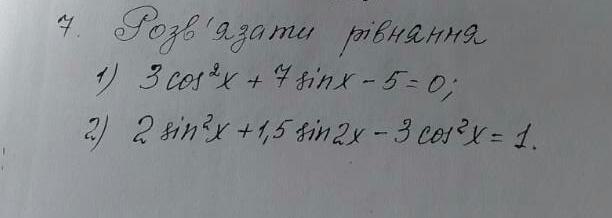 7. Розв'язати рівняння
1) 3cos²x + 7sinx - 5 = 0;
2) 2sin²x + 1,5sin2x - 3cos²x = 1.